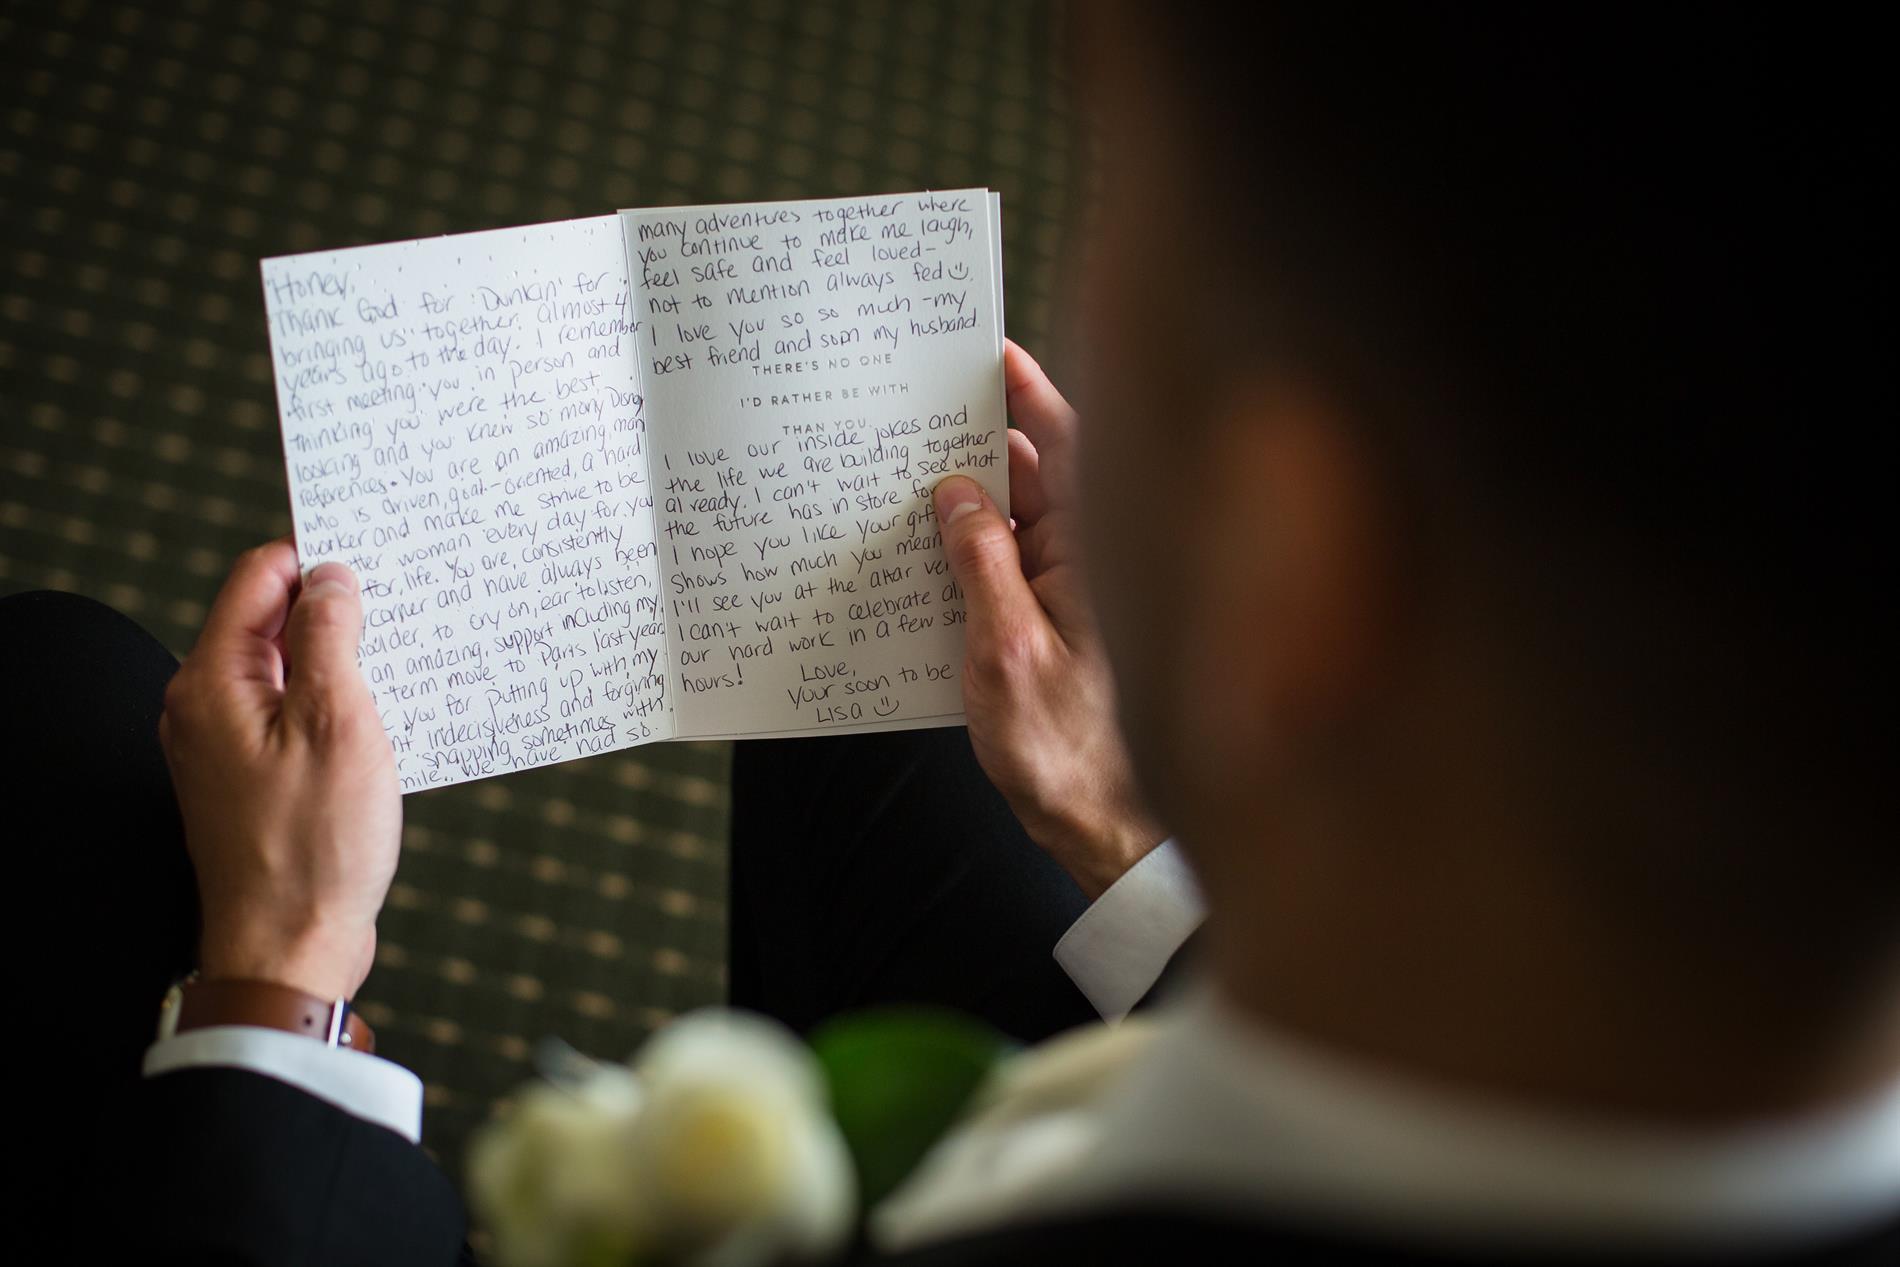 Honey,
Thank God for "Dunkin' for
bringing us" together almost 4
years ago to the day. I remember
first meeting you in person and
thinking you were the best
looking and you knew so many Disney
references. You are an amazing man
who is driven, goal-oriented, a hard
worker and make me strive to be
etter woman every day for you
for, life. You are, consistently
corner and have always been
oulder to cry on, ear to listen,
an amazing, support including my
-term move to Paris last year.
you for putting up with my
nt indecisiveness and forgiving
r snapping sometimes with
mile. We have had so
many adventures together where
you continue to make me laugh,
feel safe and feel loved-
not to mention always fed
I love you so so much - my
best friend and soon my husband.
THERE'S NO ONE
I'D RATHER BE WITH
THAN YOU.
I love our inside jokes and
the life we are building together
already. I can't wait to see what
the future has in store for
I hope you like your gif
shows how much you mean
I'll see you at the altar ve
I can't wait to celebrate al
our hard work in a few sho
hours!
Love,
Your soon to be
Lisa